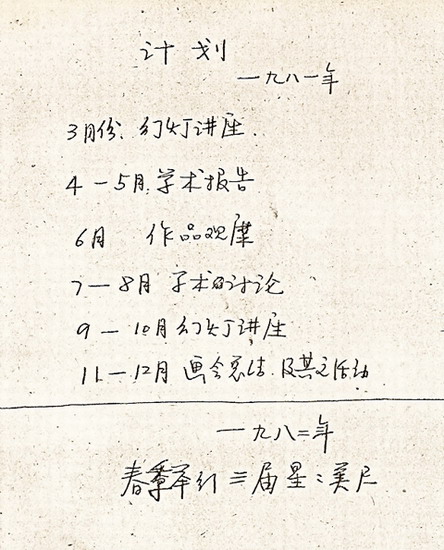 计划
一九八一年
3月份、幻灯讲座.
4—5月.学术报告
6月 作品观摩
7—8月 学术讨论
9—10月幻灯讲座
11—12月 画会总结.及其它活动
一九八二年
春季举行三届星星美展